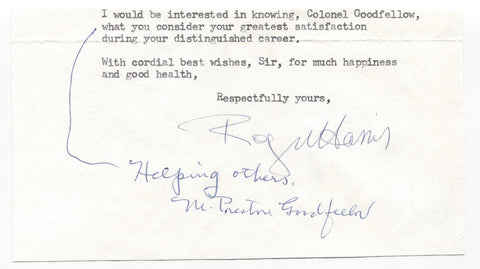 I would be interested in knowing, Colonel Goodfellow,
what you consider your greatest satisfaction
during your distinguished career.
With cordial best wishes, Sir, for much happiness
and good health,
Respectfully yours,
Roger Harris
Helping others.
M. Preston Goodfellow